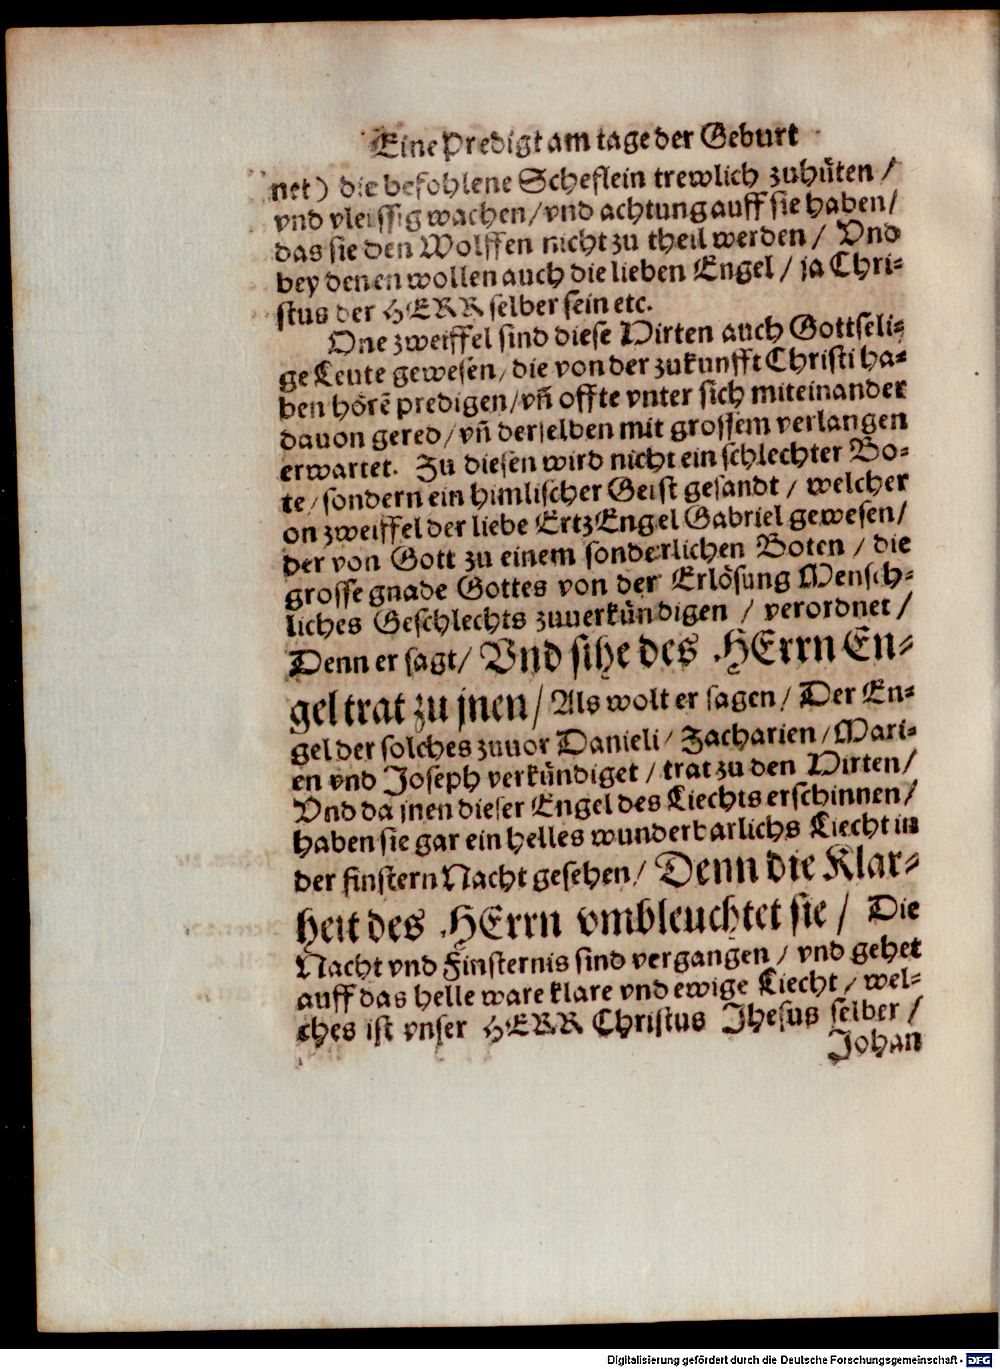 Eine Predigt am tage der Geburt
net) die befohlene Scheflein trewlich zuhüten /
vnd vleissig wachen / vnd achtung auff sie haben /
das sie den Wolffen nicht zu theil werden / Vnd
bey denen wollen auch die lieben Engel / ja Chri-
stus der HERR selber sein etc.
One zweiffel sind diese Hirten auch Gottseli-
ge Leute gewesen / die von der zukunfft Christi ha-
ben hörẽ predigen / vñ offte vnter sich miteinander
dauon gered / vñ derselben mit grossem verlangen
erwartet. Zu diesen wird nicht ein schlechter Bo-
te / sondern ein himlischer Geist gesandt / welcher
on zweiffel der liebe ErtzEngel Gabriel gewesen /
der von Gott zu einem sonderlichen Boten / die
grosse gnade Gottes von der Erlösung Mensch-
liches Geschlechts zuuerkündigen / verordnet /
Denn er sagt / Vnd sihe des HErrn En-
gel trat zu jnen / Als wolt er sagen / Der En-
gel der solches zuuor Danieli / Zacharien / Mari-
en vnd Joseph verkündiget / trat zu den Hirten /
Vnd da jnen dieser Engel des Liechts erschinnen /
haben sie gar ein helles wunderbarlichs Liecht in
der finstern Nacht gesehen / Denn die Klar-
heit des HErrn vmbleuchtet sie / Die
Nacht vnd Finsternis sind vergangen / vnd gehet
auff das helle ware klare vnd ewige Liecht / wel-
ches ist vnser HERR Christus Jhesus selber /
Johan
Digitalisierung gefördert durch die Deutsche Forschungsgemeinschaft - DFG